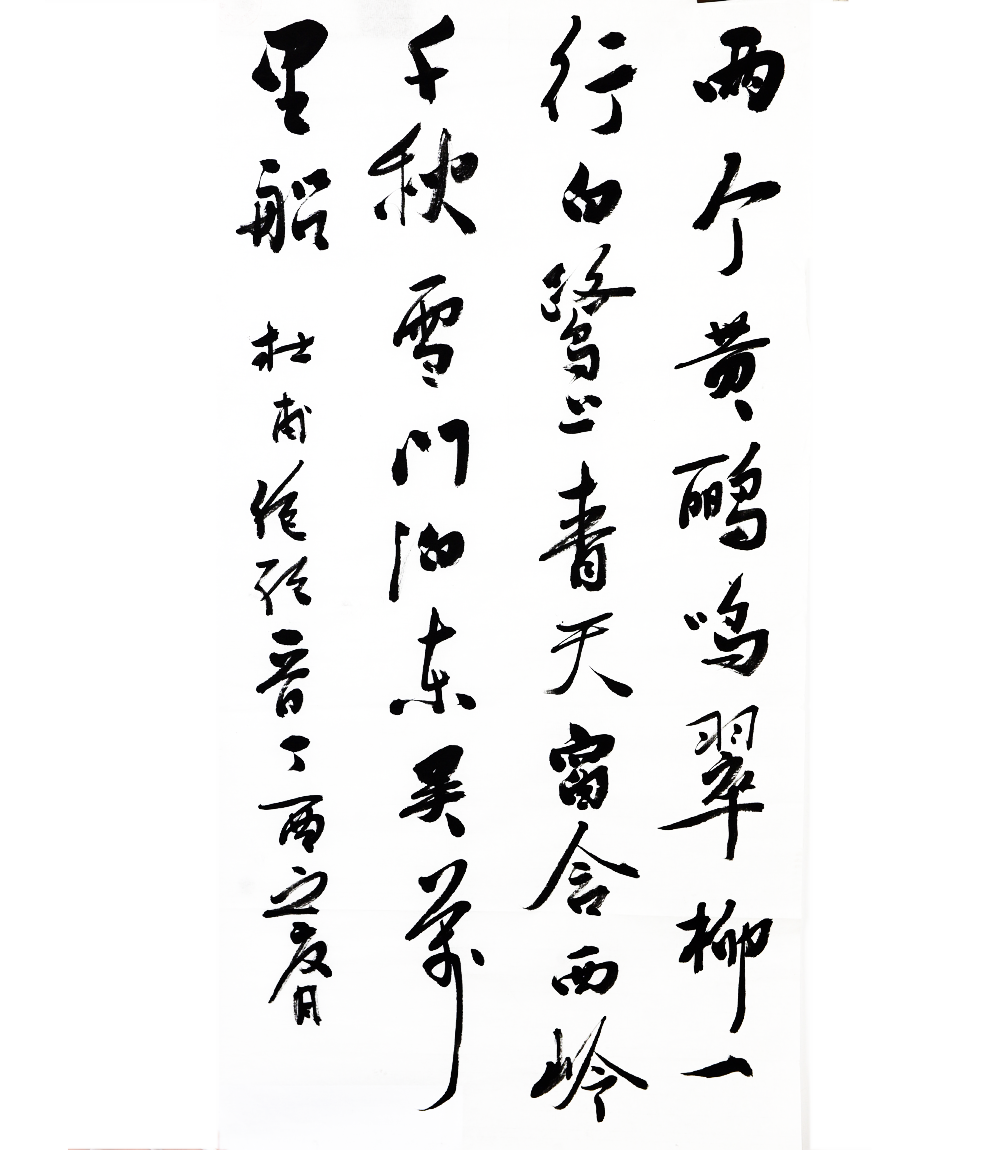 两个黄鹂鸣翠柳一
行白鹭上青天窗含西岭
千秋雪门泊东吴萬
里船 杜甫 丁酉之春月